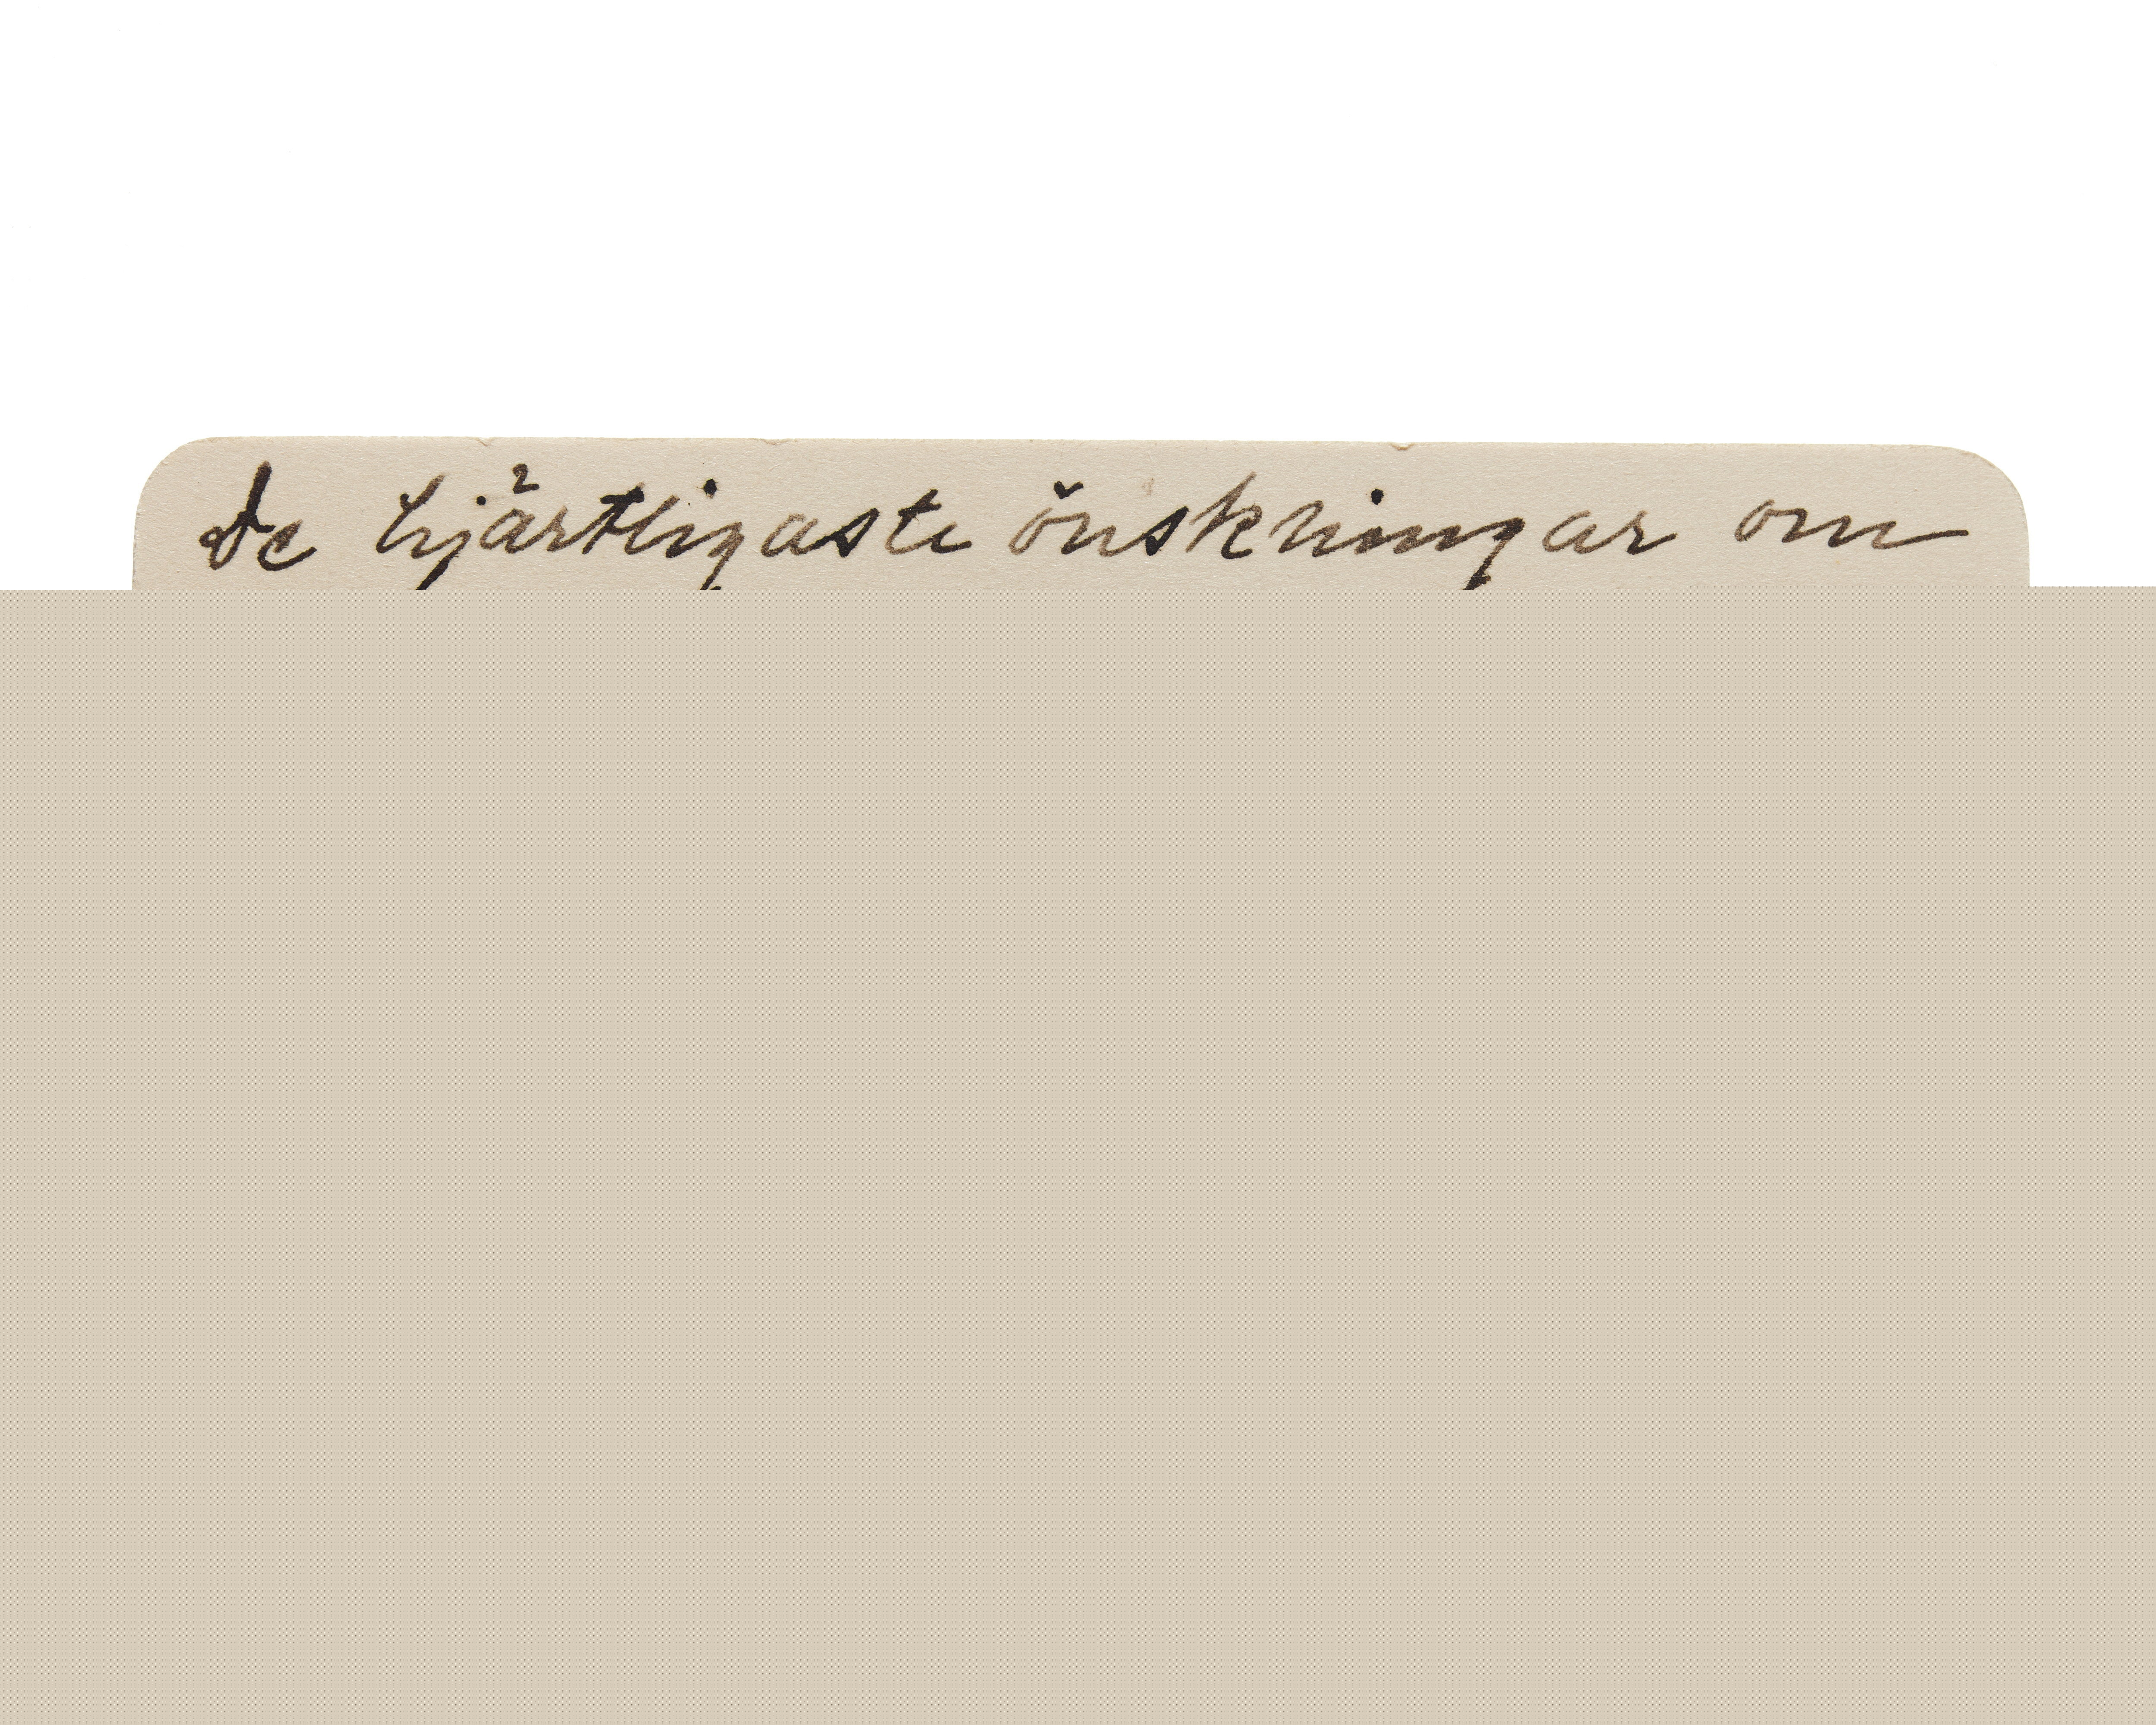 De hjärtligaste önskningar om